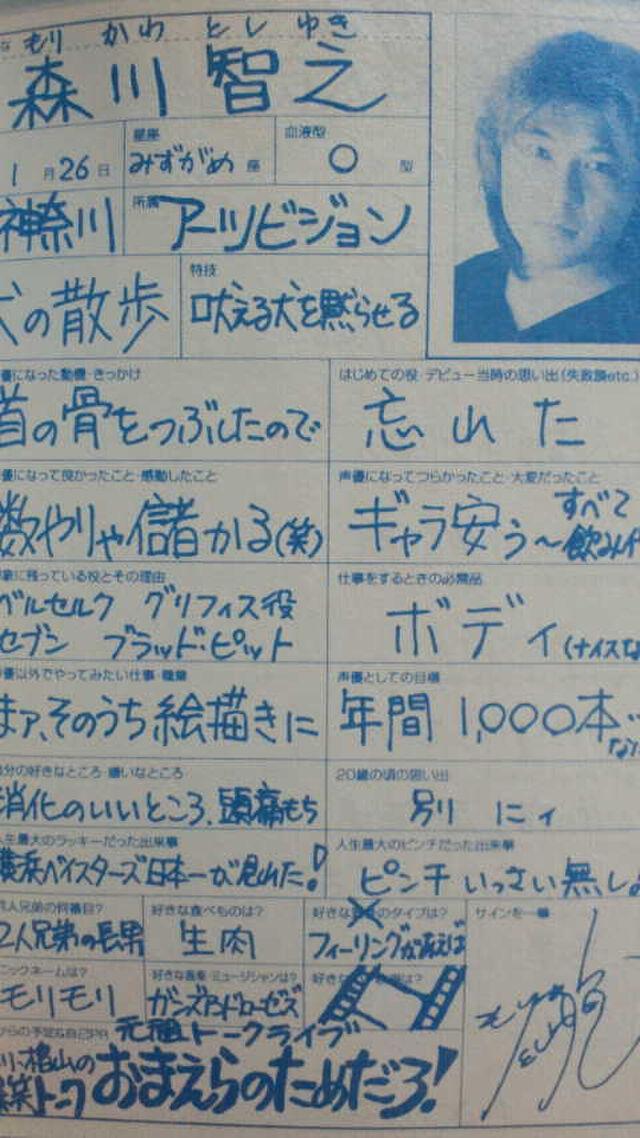 もり かわ とし ゆき
森川智之
星座
血液型
1月26日
みずがめ座
○型
神奈川
所属
アーツビジョン
特技
犬の散歩
吠える犬を黙らせる
優になった動機・きっかけ
はじめての役・デビュー当時の思い出(失敗談etc.)
首の骨をつぶしたので
忘れた
優になって良かったこと・感動したこと
声優になってつらかったこと・大変だったこと
数やりゃ儲かる(笑)
ギャラ安う〜すべて
飲み代
象に残っている役とその理由
仕事をするときの必需品
ベルセルク グリフィス役
セブン ブラッド・ピット
ボディ(ナイスな
優以外でやってみたい仕事・職業
声優としての目標
まァ、そのうち絵描きに
年間1,000本
分の好きなところ・嫌いなところ
20歳の頃の思い出
消化のいいところ、頭痛もち
別にィ
人生最大のラッキーだった出来事
人生最大のピンチだった出来事
横浜ベイスターズ日本一が見れた!
ピンチいっさい無し
人兄弟の何番目?
好きな食べものは?
好きな のタイプは?
サインを一筆
2人兄弟の長男
生肉
フィーリングがあえば
ニックネームは?
好きな音楽・ミュージシャンは?
モリモリ
ガンズアンドローゼズ
からの予定&自己PR
元祖トークライブ
檜山の
トーク
おまえらのためだろ!